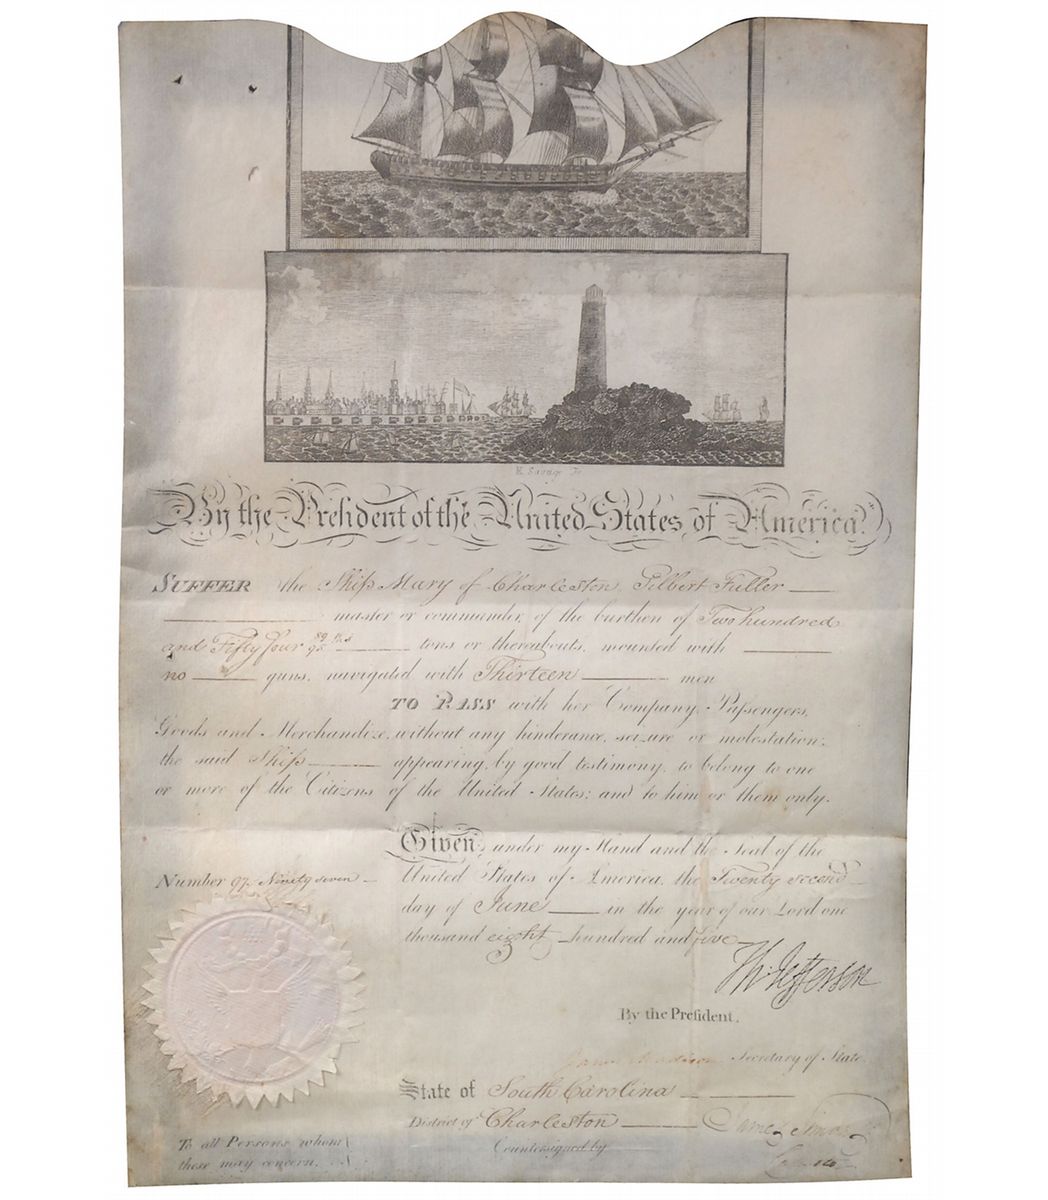 E. Savage Jr
By the President of the United States of America.
SUFFER the Ship Mary of Charleston Gilbert Fuller
master or commander, of the burthen of Two hundred
and Fifty four 89/95ths tons or thereabouts, mounted with
no guns, navigated with Thirteen men
TO PASS with her Company, Passengers,
Goods and Merchandize, without any hinderance, seizure or molestation;
the said Ship appearing, by good testimony, to belong to one
or more of the Citizens of the United States; and to him or them only.
Given, under my Hand and the Seal of the
Number 97. Ninety seven United States of America, the Twenty second
day of June in the year of our Lord one
thousand eight hundred and five
Th: Jefferson
By the President.
James Madison Secretary of State
State of South Carolina
District of Charleston James Simons
Countersigned by
To all Persons whom
these may concern.